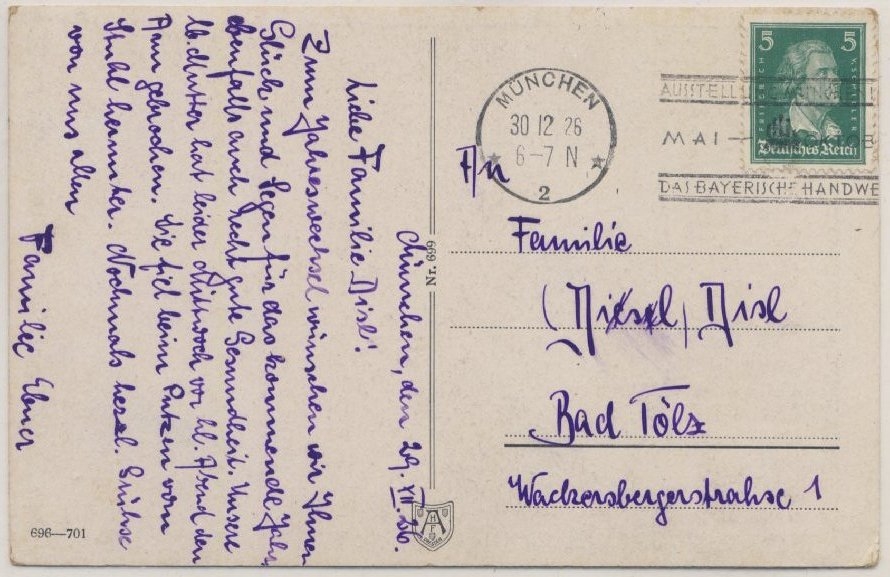 München, den 29. XII. 26.
Liebe Familie Disl!
Zum Jahreswechsel wünschen wir Ihnen
Glück und Segen für das kommende Jahr,
ebenfalls auch recht gute Gesundheit. Unsere
lb. Mutter hat leider Mittwoch vor hl. Abend den
Arm gebrochen. Sie fiel beim Putzen vom
Stuhl herunter. Nochmals herzl. Grühse
von uns allen
Familie Ebner
696—701
Nr. 699
MÜNCHEN
30 12 26
6-7 N
2
5 5
FRIEDRICH V. SCHILLER
Deutsches Reich
AUSSTELLUNG
MAI —
DAS BAYERISCHE HANDWE
An
Familie
Disl
Bad Tölz
Wackersbergerstrahse 1